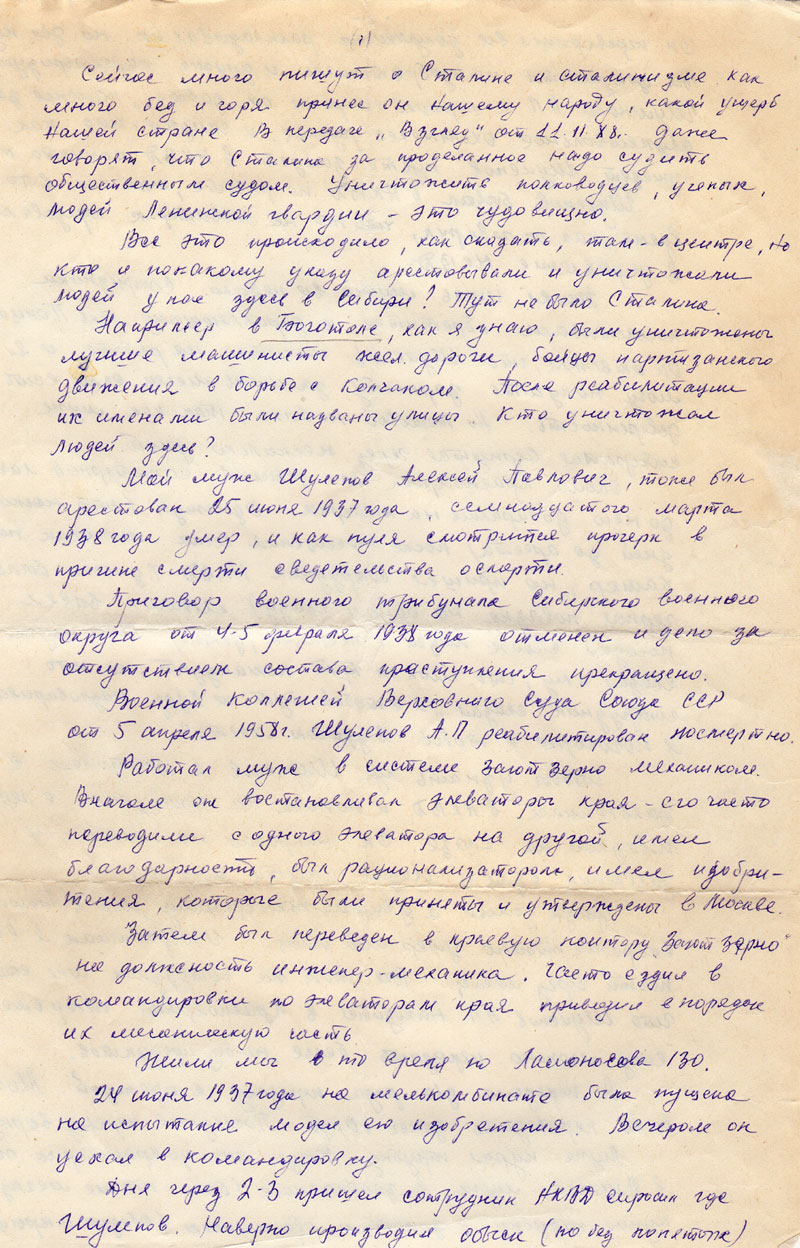 1)
Сейчас много пишут о Сталине и сталинизме как
много бед и горя принес он нашему народу, какой ущерб
нашей стране В передаче „Взгляд" от 11.11.88г. даже
говорят, что Сталина за проделанное надо судить
общественным судом. Уничтожить полководцев, ученых,
людей Ленинской гвардии – это чудовищно.
Все это происходило, как сказать, там – в центре, но
кто и по какому указу арестовывали и уничтожали
людей у нас здесь в Сибири? Тут не было Сталина.
Например в Боготоле, как я знаю, были уничтожены
лучшие машинисты жел. дороги, бойцы партизанского
движения в борьбе с Колчаком. После реабилитации
их именами были названы улицы. Кто уничтожал
людей здесь?
Мой муж Шулепов Алексей Павлович, тоже был
арестован 25 июня 1937 года, семнадцатого марта
1938 года умер, и как пуля смотрится прочерк в
причине смерти сведетельства о смерти.
Приговор военного трибунала Сибирского военного
округа от 4-5 февраля 1938 года отменен и дело за
отсутствием состава преступления прекращено.
Военной Коллегией Верховного Суда Союза ССР
от 5 апреля 1958г. Шулепов А.П реабилитирован посмертно.
Работал муж в системе Заготзерно механиком.
Вначале он востановливал элеваторы края – его часто
переводили с одного элеватора на другой, имел
благодарности, был рационализатором, имел изобри-
тения, которые были приняты и утверждены в Москве.
Затем был переведен в краевую контору „Заготзерно"
на должность инженер-механика. Часто ездил в
командировки по элеваторам края приводил в порядок
их механическую часть.
Жили мы в то время по Ломоносова 130.
24 июня 1937 года на мелькомбинате была пущена
на испытание модель его изобретения. Вечером он
уехал в командировку.
Дня через 2-3 пришел сотрудник НКВД спросил где
Шулепов. Наверно производил обыск (но без понятых)